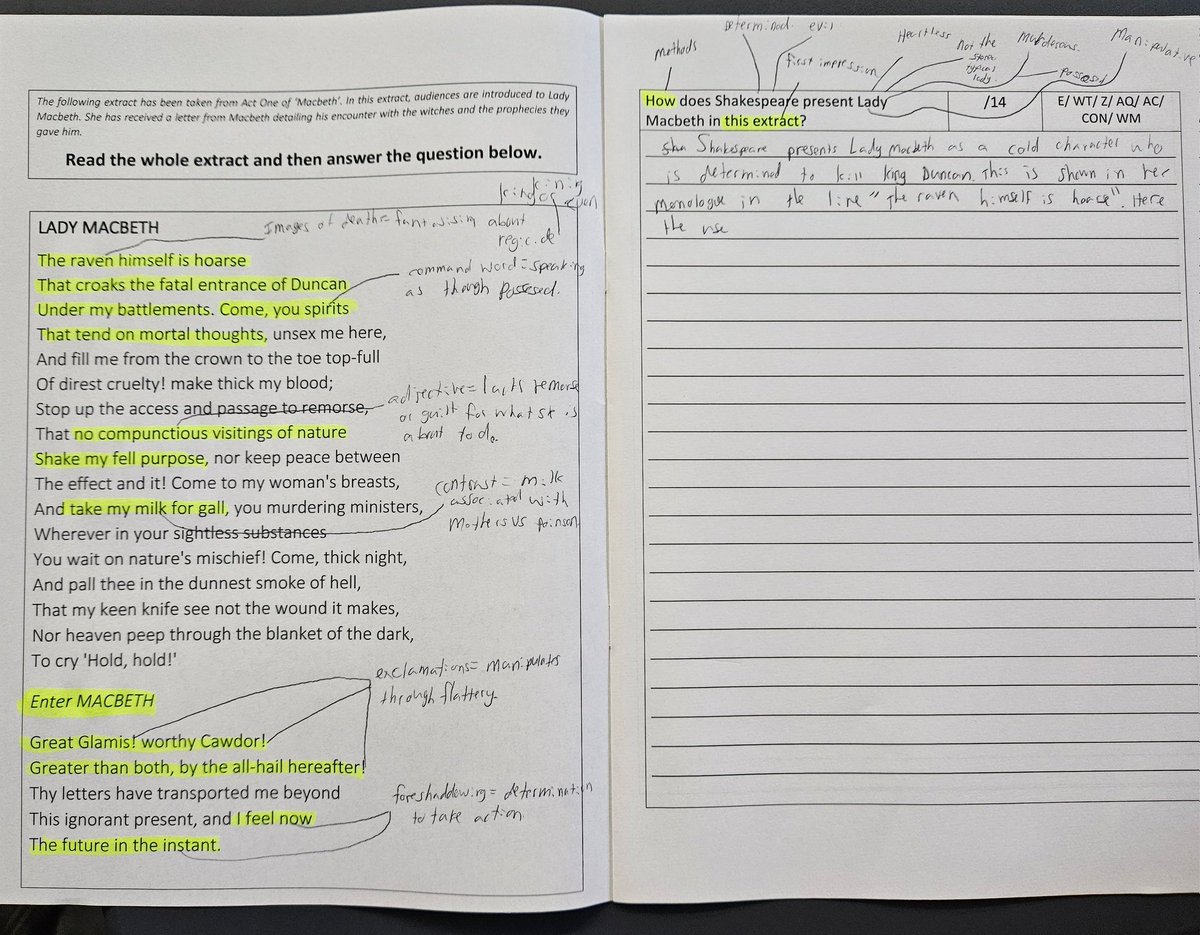 The following extract has been taken from Act One of 'Macbeth'. In this extract, audiences are introduced to Lady
Macbeth. She has received a letter from Macbeth detailing his encounter with the witches and the prophecies they
gave him.
Read the whole extract and then answer the question below.
LADY MACBETH
Images of death= fantasising about
regicide
killing
king
The raven himself is hoarse
That croaks the fatal entrance of Duncan
Under my battlements. Come, you spirits
That tend on mortal thoughts, unsex me here,
command word= speaking
as though possesed.
And fill me from the crown to the toe top-full
Of direst cruelty! make thick my blood;
Stop up the access and passage to remorse,
That no compunctious visitings of nature
adjective= lacks remorse
or guilt for what she is
about to do.
Shake my fell purpose, nor keep peace between
The effect and it! Come to my woman's breasts,
And take my milk for gall, you murdering ministers,
contrast= milk
associated with
mothers vs poinson
Wherever in your sightless substances
You wait on nature's mischief! Come, thick night,
And pall thee in the dunnest smoke of hell,
That my keen knife see not the wound it makes,
Nor heaven peep through the blanket of the dark,
To cry 'Hold, hold!'
Enter MACBETH
exclamations= manipulates
through flattery.
Great Glamis! worthy Cawdor!
Greater than both, by the all-hail hereafter!
Thy letters have transported me beyond
This ignorant present, and I feel now
The future in the instant.
foreshaddowing= determination
to take action
methods
Determined
evil
first impression
Heartless
Not the
stereo
typical
lady.
Murderous
possesed
Manipulative
How does Shakespeare present Lady
Macbeth in this extract?
/14
E/ WT/ Z/ AQ/ AC/
CON/ WM
Shakespeare presents Lady Macbeth as a cold character who
is determined to kill King Duncan. This is shown in her
monologue in the line "The raven himself is hoarse". Here
the use